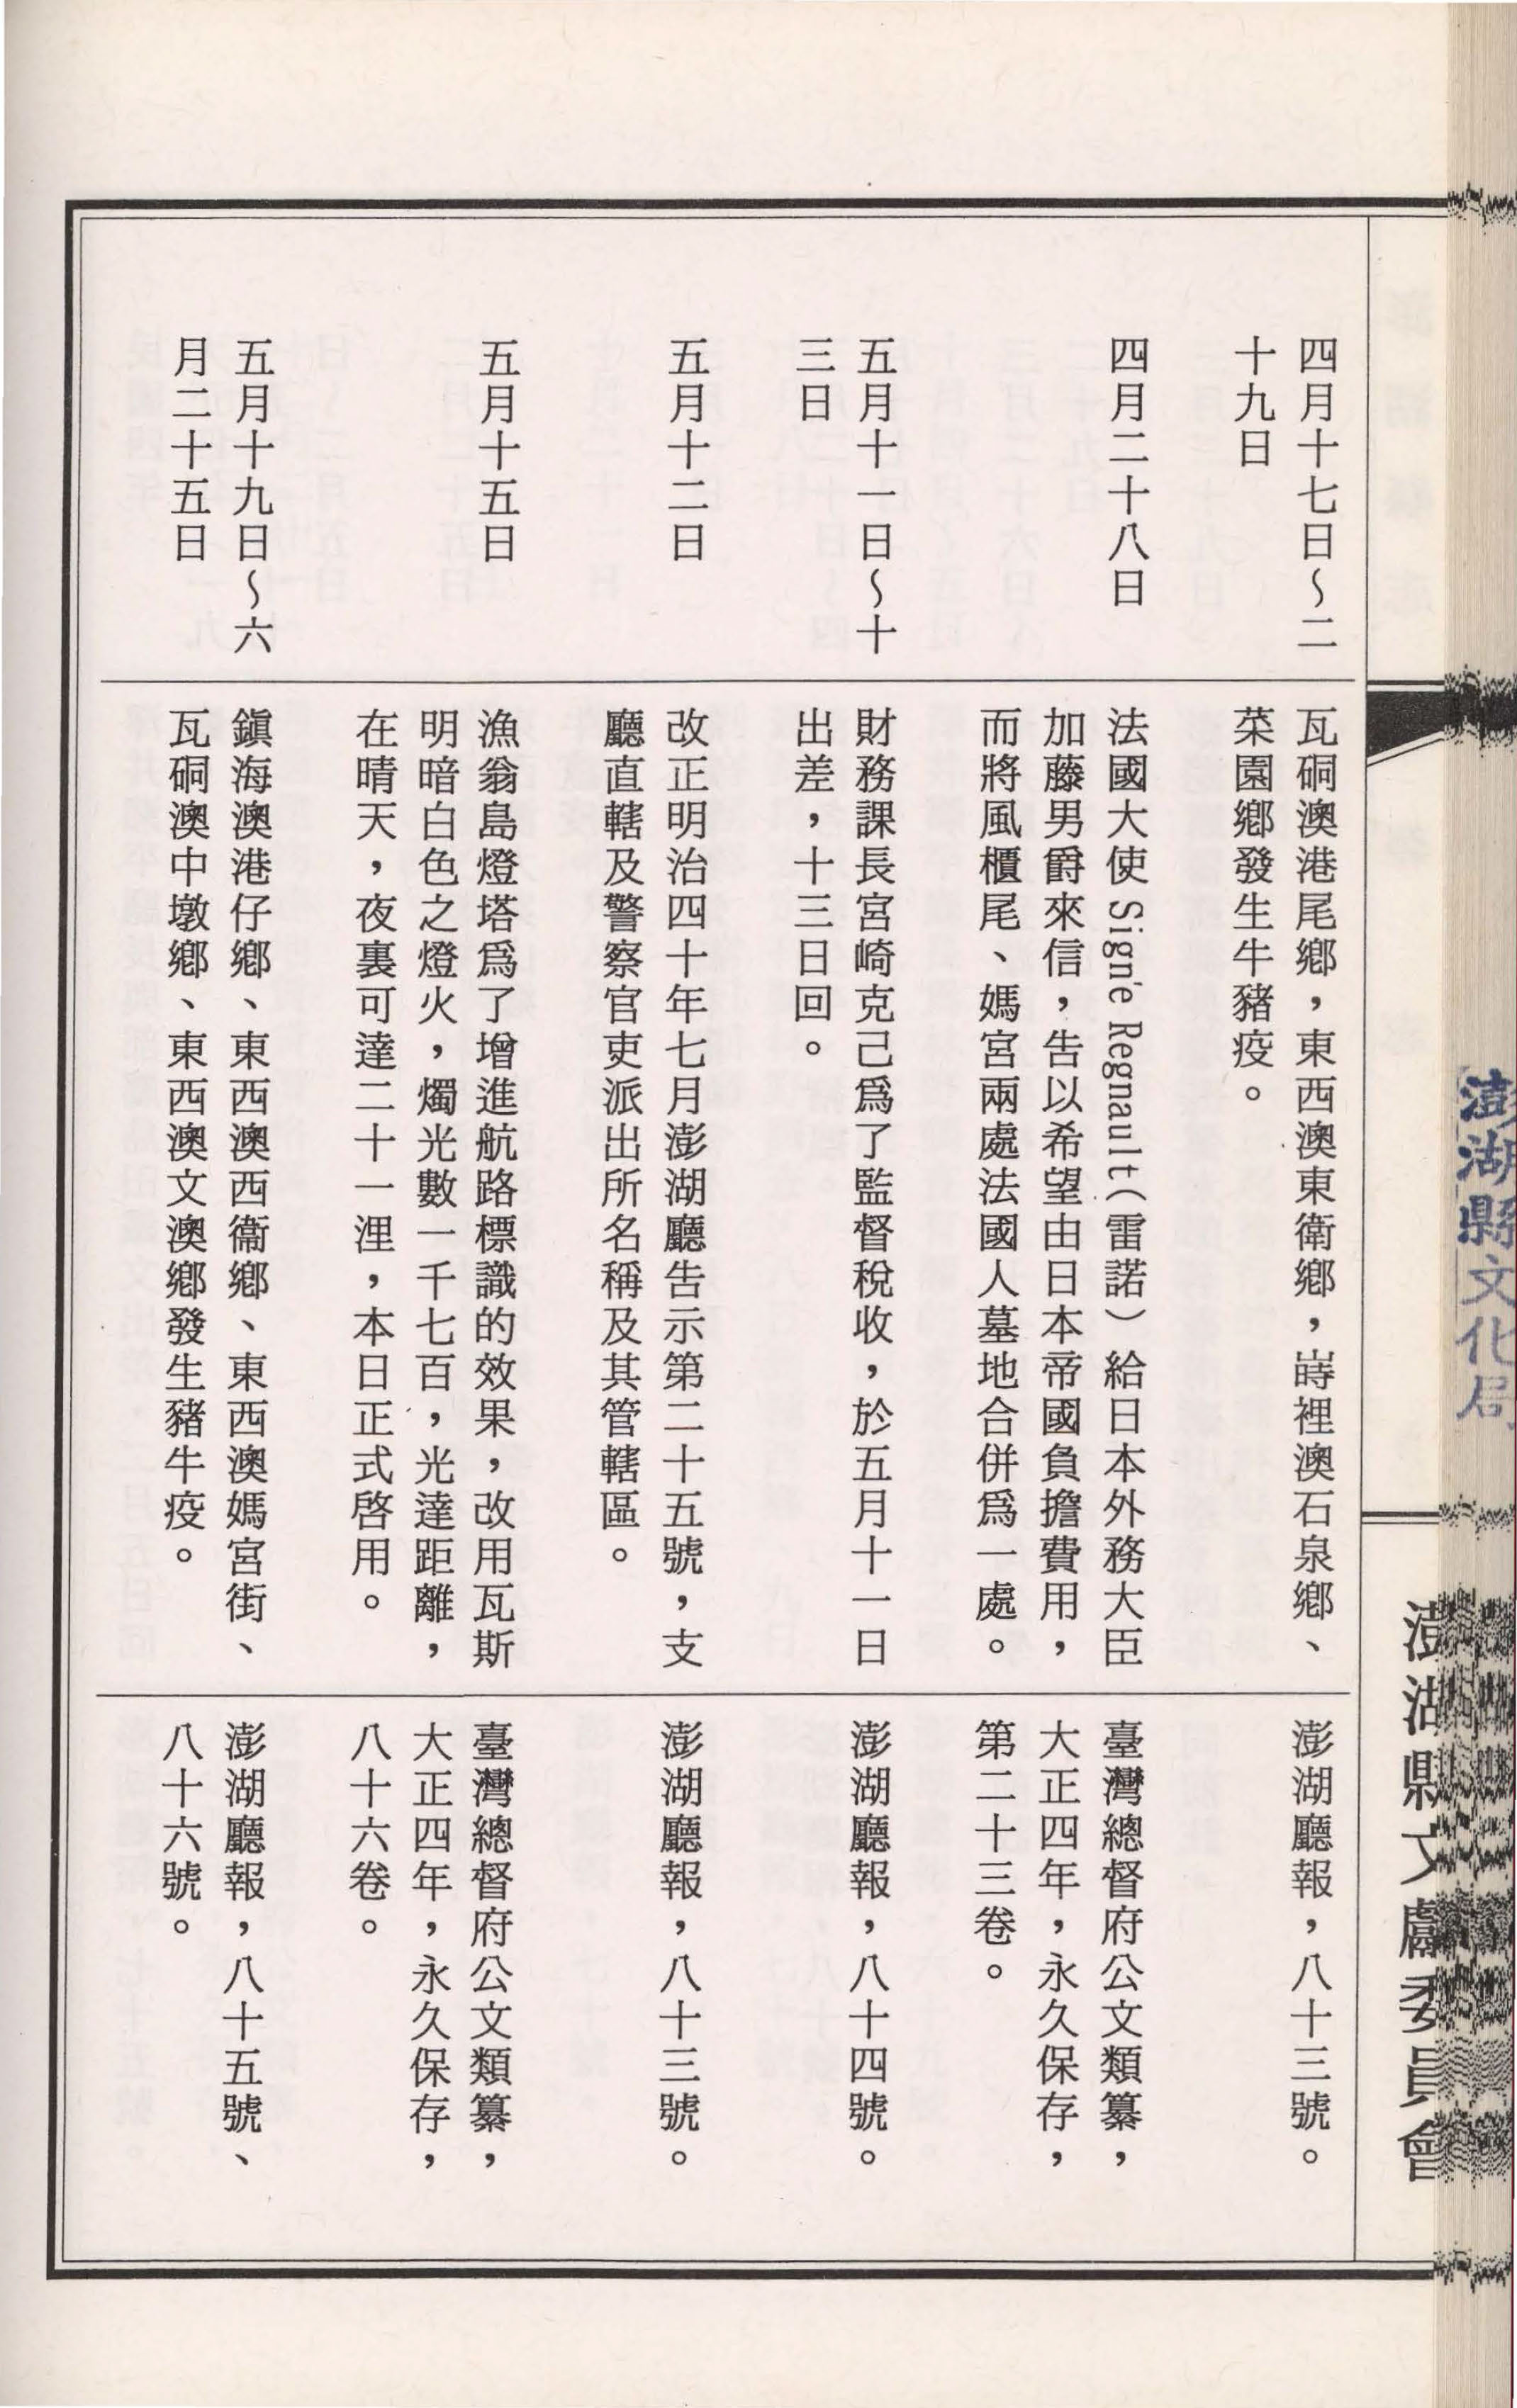 四月十七日～二
十九日
瓦硐澳港尾鄉，東西澳東衛鄉，嵵裡澳石泉鄉、
菜園鄉發生牛豬疫。
澎湖廳報，八十三號。
四月二十八日
法國大使 Sign'e Regnault(雷諾）給日本外務大臣
加藤男爵來信，告以希望由日本帝國負擔費用，
而將風櫃尾、媽宮兩處法國人墓地合併爲一處。
臺灣總督府公文類纂，
大正四年，永久保存，
第二十三卷。
五月十一日～十
三日
財務課長宮崎克己爲了監督稅收，於五月十一日
出差，十三日回。
澎湖廳報，八十四號。
五月十二日
改正明治四十年七月澎湖廳告示第二十五號，支
廳直轄及警察官吏派出所名稱及其管轄區。
澎湖廳報，八十三號。
五月十五日
漁翁島燈塔爲了增進航路標識的效果，改用瓦斯
明暗白色之燈火，燭光數一千七百，光達距離，
在晴天，夜裏可達二十一浬，本日正式啓用。
臺灣總督府公文類纂，
大正四年，永久保存，
八十六卷。
五月十九日～六
月二十五日
鎭海澳港仔鄉、東西澳西衞鄉、東西澳媽宮街、
瓦硐澳中墩鄉、東西澳文澳鄉發生豬牛疫。
澎湖廳報，八十五號、
八十六號。
澎湖縣文獻委員會
澎湖縣文化局